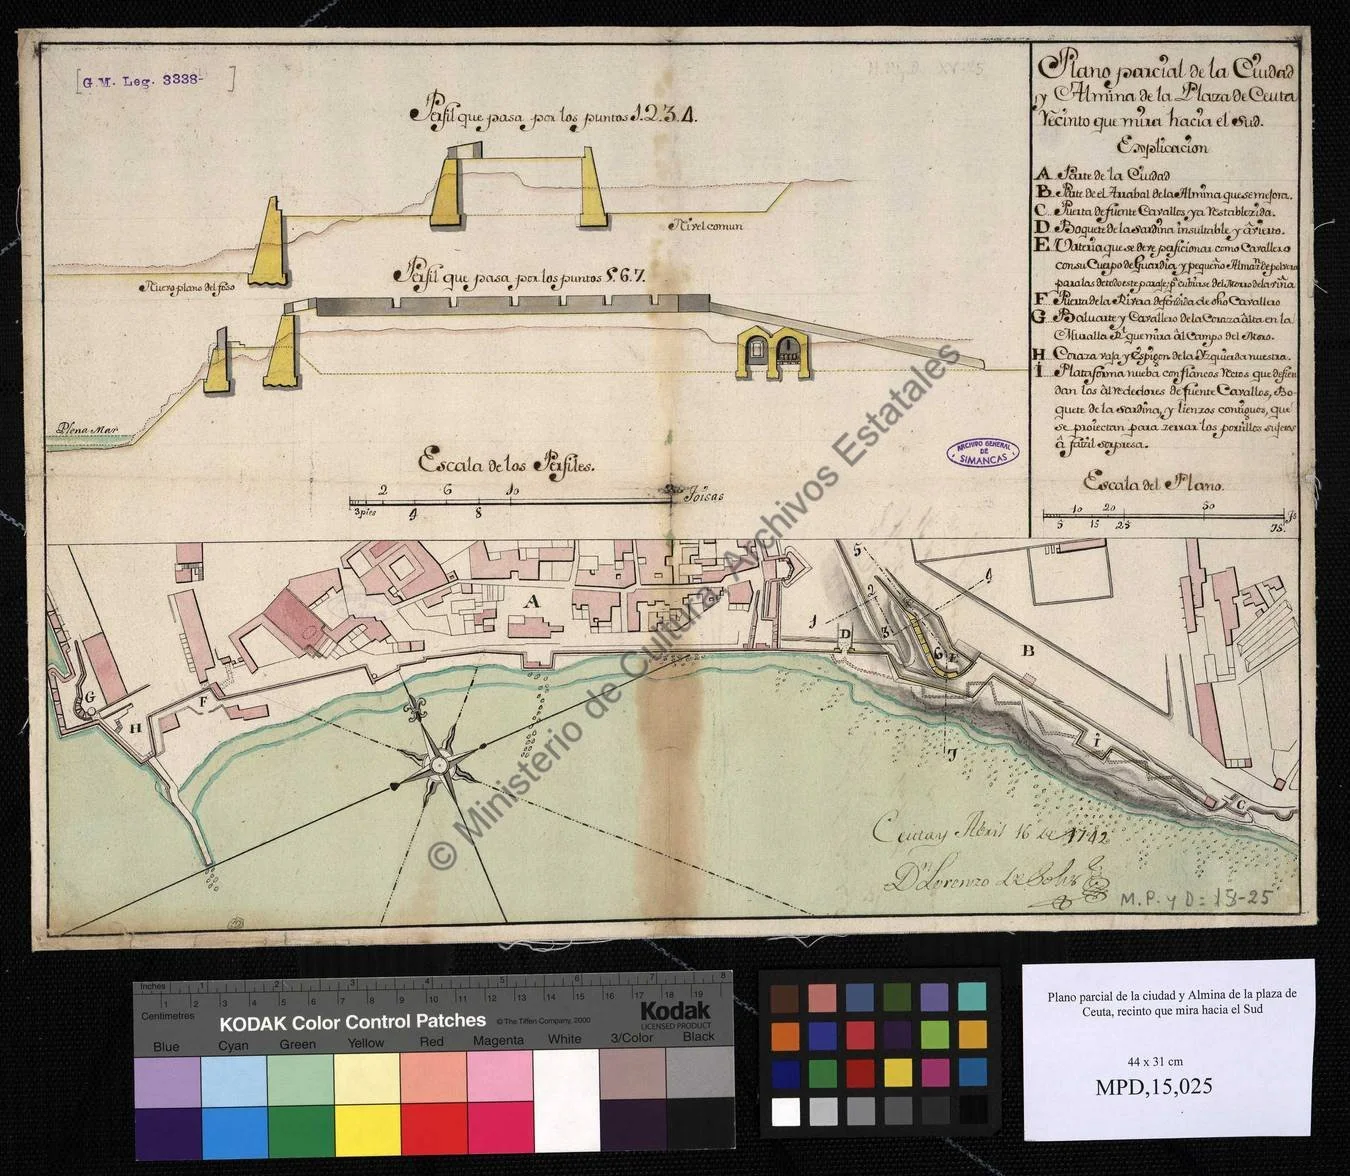 [G.M. Leg. 3338- ]
Perfil que pasa por los puntos 1.2.3.4.
Nivel comun
Nuevo plano del foso
Perfil que pasa por los puntos 5.6.7.
Plena Mar
Escala de los Perfiles.
2 6 10 Toisas
3 pies 4 8
Plano parcial de la Ciudad
y Almina de la Plaza de Ceuta
Recinto que mira hacia el Sud.
Explicacion
A Parte de la Ciudad
B Parte de el Arrabal de la Almina que se mejora.
C Puerta de fuente Cavallos ya restablezida.
D Boquete de la Sardina insultable y avierto.
E Vateria que se deve perficionar como Cavallero
con su Cuerpo de Guardia y pequeño Almazn de polvora
para las de todo este paraje, pa cubrirse del Morro de la viña
F Puerta de la Rivera defendida de dho Cavallero
G Baluarte y Cavallero de la Coraza alta en la
Muralla Rl que mira al Campo del Moro.
H Coraza vaja y Espigon de la Yzquierda nuestra.
I Plataforma nueba con flancos rectos que defien
dan los alrededores de fuente Cavallos, Bo-
quete de la Sardina, y lienzos contiguos, que
se proiectan para zerrar los portillos sujetos
â fazil sorpresa.
ARCHIVO GENERAL
DE
SIMANCAS
Escala del Plano.
10 20 50
5 15 25 75
A
5
4
2
1
D
3
6
E
B
G
F
H
7
I
C
Ceuta y Abril 16 de 1742
Dn Lorenzo de Solis
M.P. y D: 15-25
© Ministerio de Cultura. Archivos Estatales
Inches 1 2 3 4 5 6 7 8
Centimetres 1 2 3 4 5 6 7 8 9 10 11 12 13 14 15 16 17 18 19
KODAK Color Control Patches © The Tiffen Company, 2000 Kodak
LICENSED PRODUCT
Blue Cyan Green Yellow Red Magenta White 3/Color Black
Plano parcial de la ciudad y Almina de la plaza de
Ceuta, recinto que mira hacia el Sud
44 x 31 cm
MPD,15,025